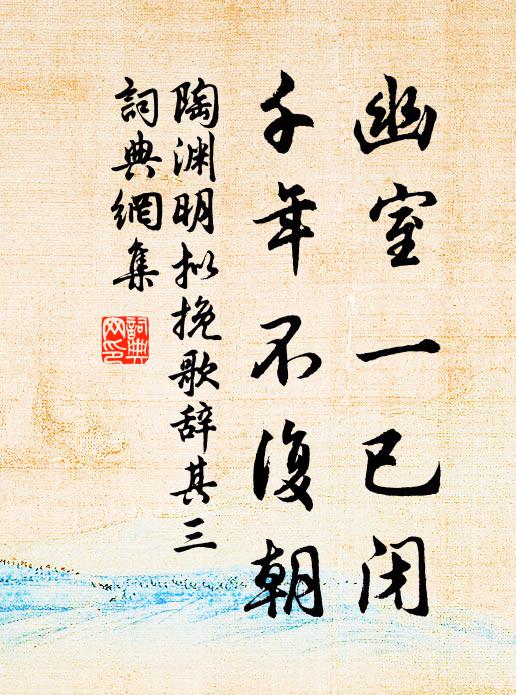 幽室一已闭
千年不復朝
陶渊明拟挽歌辞其三
詞典網集
詞典网印